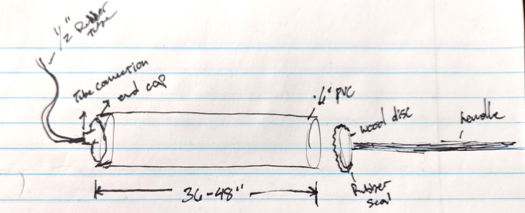 1/2" Rubber
tube
Tube connection
end cap
4" PVC
wood disc
handle
Rubber
seal
36-48"